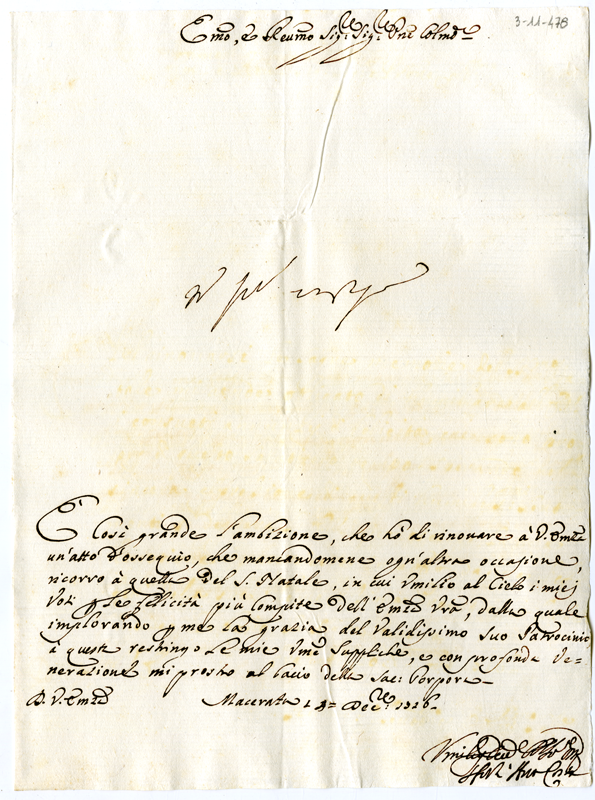 3-11-478
Emo, e Reumo Sig:re Sig:re Pne Colmo
E' Così grande l'ambizione, che hò di rinouare à V. Emza
un'atto d'ossequio, che mancandomene ogn'altra occasione,
ricorro à quella del S. Natale, in cui umilio al Cielo i miej
Voti p le felicità più Compite dell'Emza Vra, dalla quale
implorando p me la grazia del Validissimo suo Patrocinio
à questa restringo le mie Vme Suppliche, e con profonda Ve=
nerazione mi prostro al bacio della Sac: Porpora
D. V. Emza Macerata Dec.re